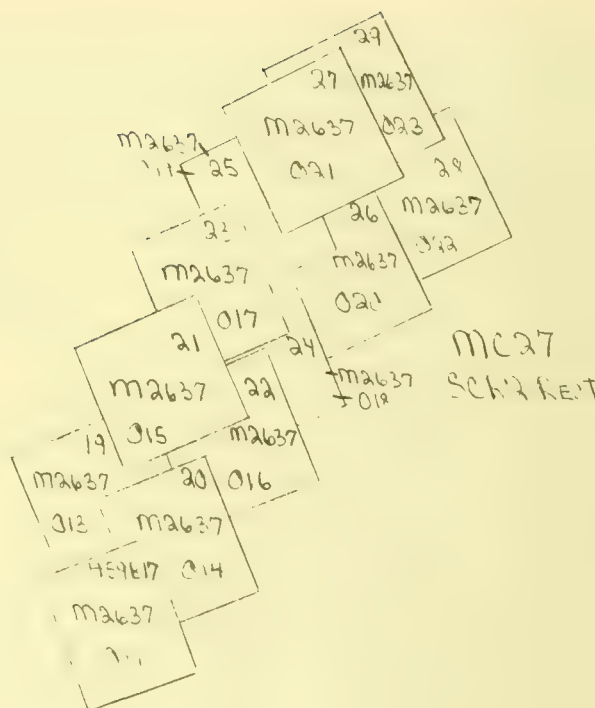 29
M2637
023
27
M2637
021
28
M2637
022
M2637
25
26
M2637
M2637
017
24
M2637
018
21
M2637
015
22
M2637
016
MC27
19
M2637
013
20
M2637
014
459E17
M2637